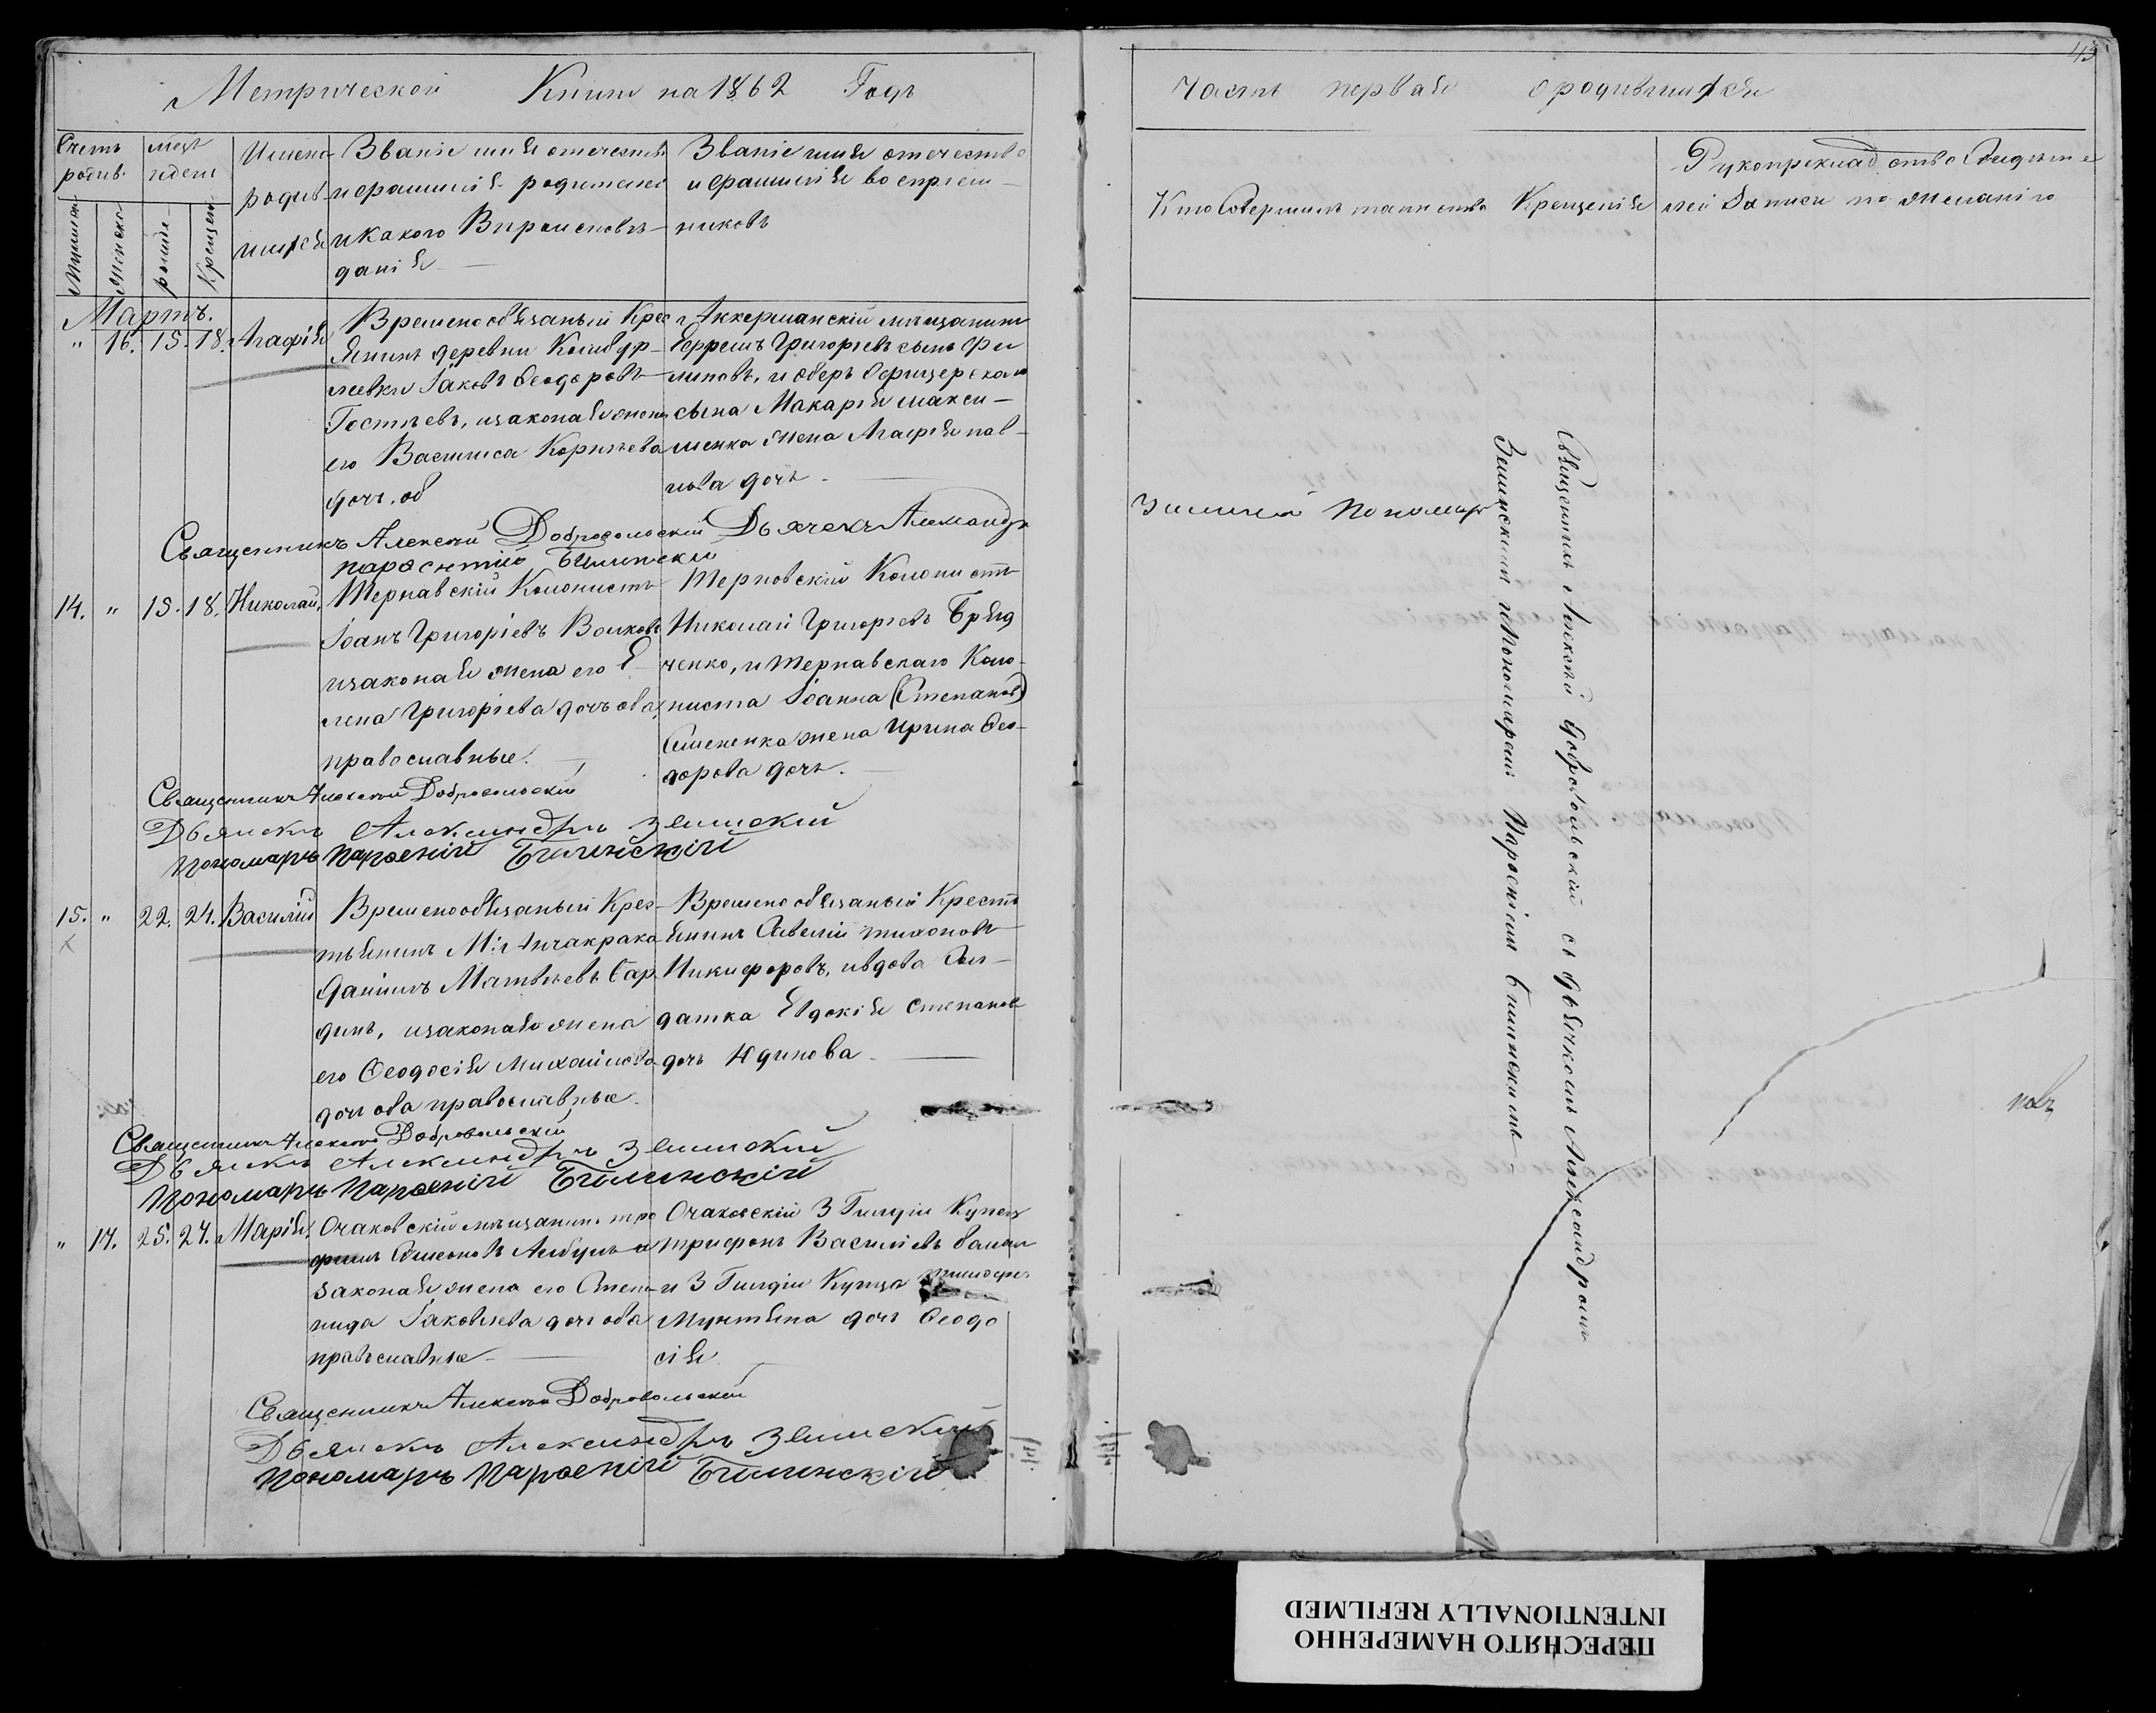 Метрической Книги на 1862 Годъ
Счетъ родив.
Мужеска
Женска
месяц и дени
рожде
Крещен
Имена родив шихся
Званіе имя отечество
и фамилія родителей
и какого Вироисповъ-
данія
Званіе имя отечество
и фамилія воспріем-
никовъ
Мартъ.
" 16. 15. 18. Агафія
Временообязаный Крес
янинъ деревни
Іаковъ Феодоровъ
Гостѣевъ, изаконая жена
его Василиса Корнѣева
дочь. об
Аккерманскій мѣщанинъ
Ефремъ Григорьевъ сынъ Фи
липовъ, и оберъ офицерскаго
сына Макарія макси-
менка жена Агафія пав-
лова дочь
Священникъ Алексѣй Добровольскій Дьячекъ Александр
парѳѣній Билинскій
14. " 15. 18. Николай,
Тернавскій Колонистъ
Іоанъ Григоріевъ Волковъ
изаконая жена его Е
лена Григоріева дочь оба
православные.
Терновскій Колонистъ
Николай Григорьевъ Бряд
ченко, и тернавскаго Коло
ниста Іоанна (Степанов)
Семененка жена Ирина Фео-
дорова дочь.
Священникъ Алексѣй Добровольскій
Дьячекъ Александръ Зелинскій
Пономарь Парѳеній Билинскій
15. " 22. 24. Василій
Временообязаный Крес-
тьянинъ М: Анчакрака
Даніилъ Матвѣевъ Бар
динъ, изаконая жена
его Феодосія Михайлова
дочь оба православные.
Временообязаный Крестъ
янинъ Савелій тихоновъ
Никифоровъ, ивдова Сол-
датка Евдокія Степанов
дочь Юдинова
Священникъ Алексѣй Добровольскій
Дьячекъ Александръ Зелинскій
Пономарь Парѳеній Билинскій
" 17. 25. 27. Марія,
Очаковскій мѣщанинъ тро
фимъ Симеоновъ Албулъ и
законая жена его Степа
нида Іаковлева дочь оба
православные
Очаковскій 3 Гилдіи Купец
трифонъ Василіевъ
и 3 Гилдіи Купца
Мунтяна дочь Феодо
сія
Священникъ Алексѣй Добровольскій
Дьячекъ Александръ Зелинскій
Пономарь Парѳеній Билинскій
43
Часть первая о родившихся
Кто Совершилъ таинство Крещенія
Рукоприклад ство Свидѣте
лей Записи по желанію
Священникъ Алексѣй Добровольскій съ дьячкомъ Александромъ
Зелинскимъ иПономаремъ Парѳеніемъ Билинскимъ
ПЕРЕСНЯТО НАМЕРЕННО
INTENTIONALLY REFILMED